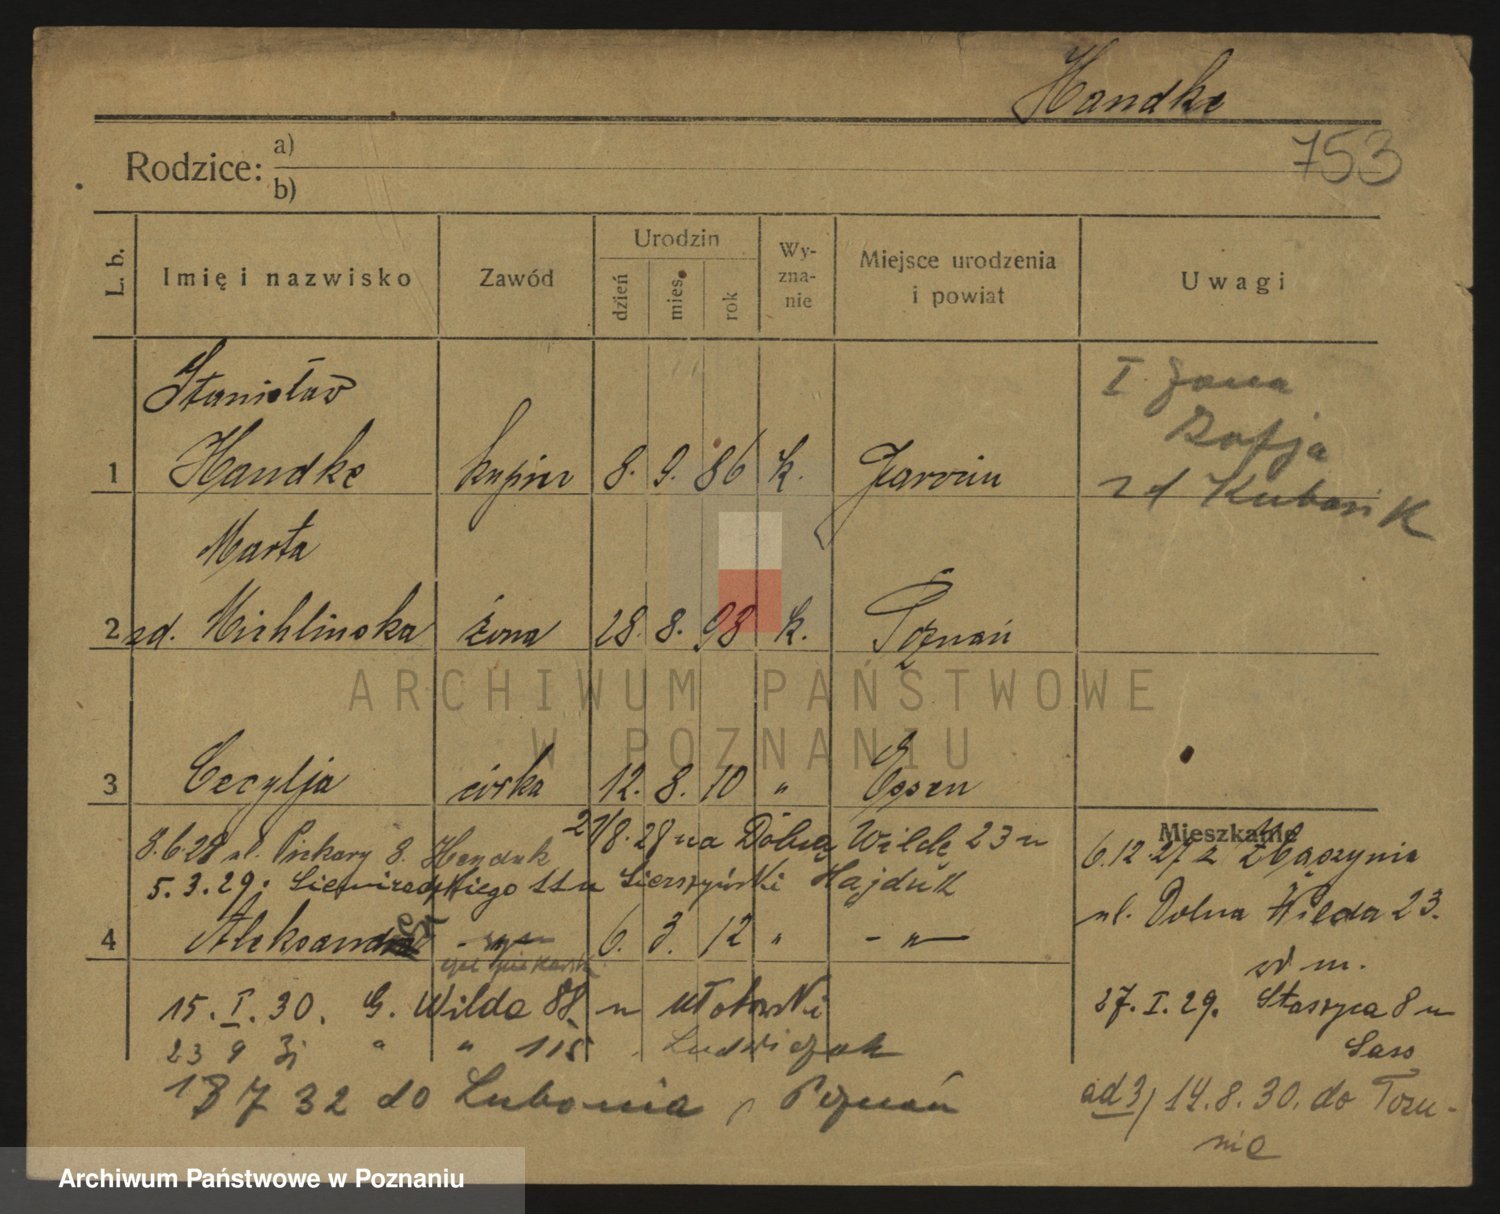 Handke
753
Rodzice: a)
b)
L. b.
Imię i nazwisko
Zawód
Urodzin
dzień
mies.
rok
Wy-
zna-
nie
Miejsce urodzenia
i powiat
Uwagi
Stanisław
1 Handke kupiec 8. 9. 86 k. Jarocin
I żona
Zofja
zd Kubasik
Marta
2 zd. Michlinska żona 28. 8. 98 k. Poznań
ARCHIWUM PAŃSTWOWE
W POZNANIU
3 Cecylja córka 12. 8. 10 " Essen
Mieszkanie
8.6.28 ul. Piekary 8. 21/8.28 na Dólną Wildę 23 u
5.3.29. Siemiradzkiego 11 u Hajduk
6.12.27 z Zbąszynia
ul. Dolna Wilda 23.
4 Aleksander - " - 6. 3. 12 " - " -
15. I. 30. G. Wilda 88 u
23 9 31 " " 115 Ludwiczak
18 7 32 do Lubonia, Poznań
27. I. 29. Staszyca 8 u
Sass
ad 3) 14.8.30. do Toru-
nia
Archiwum Państwowe w Poznaniu